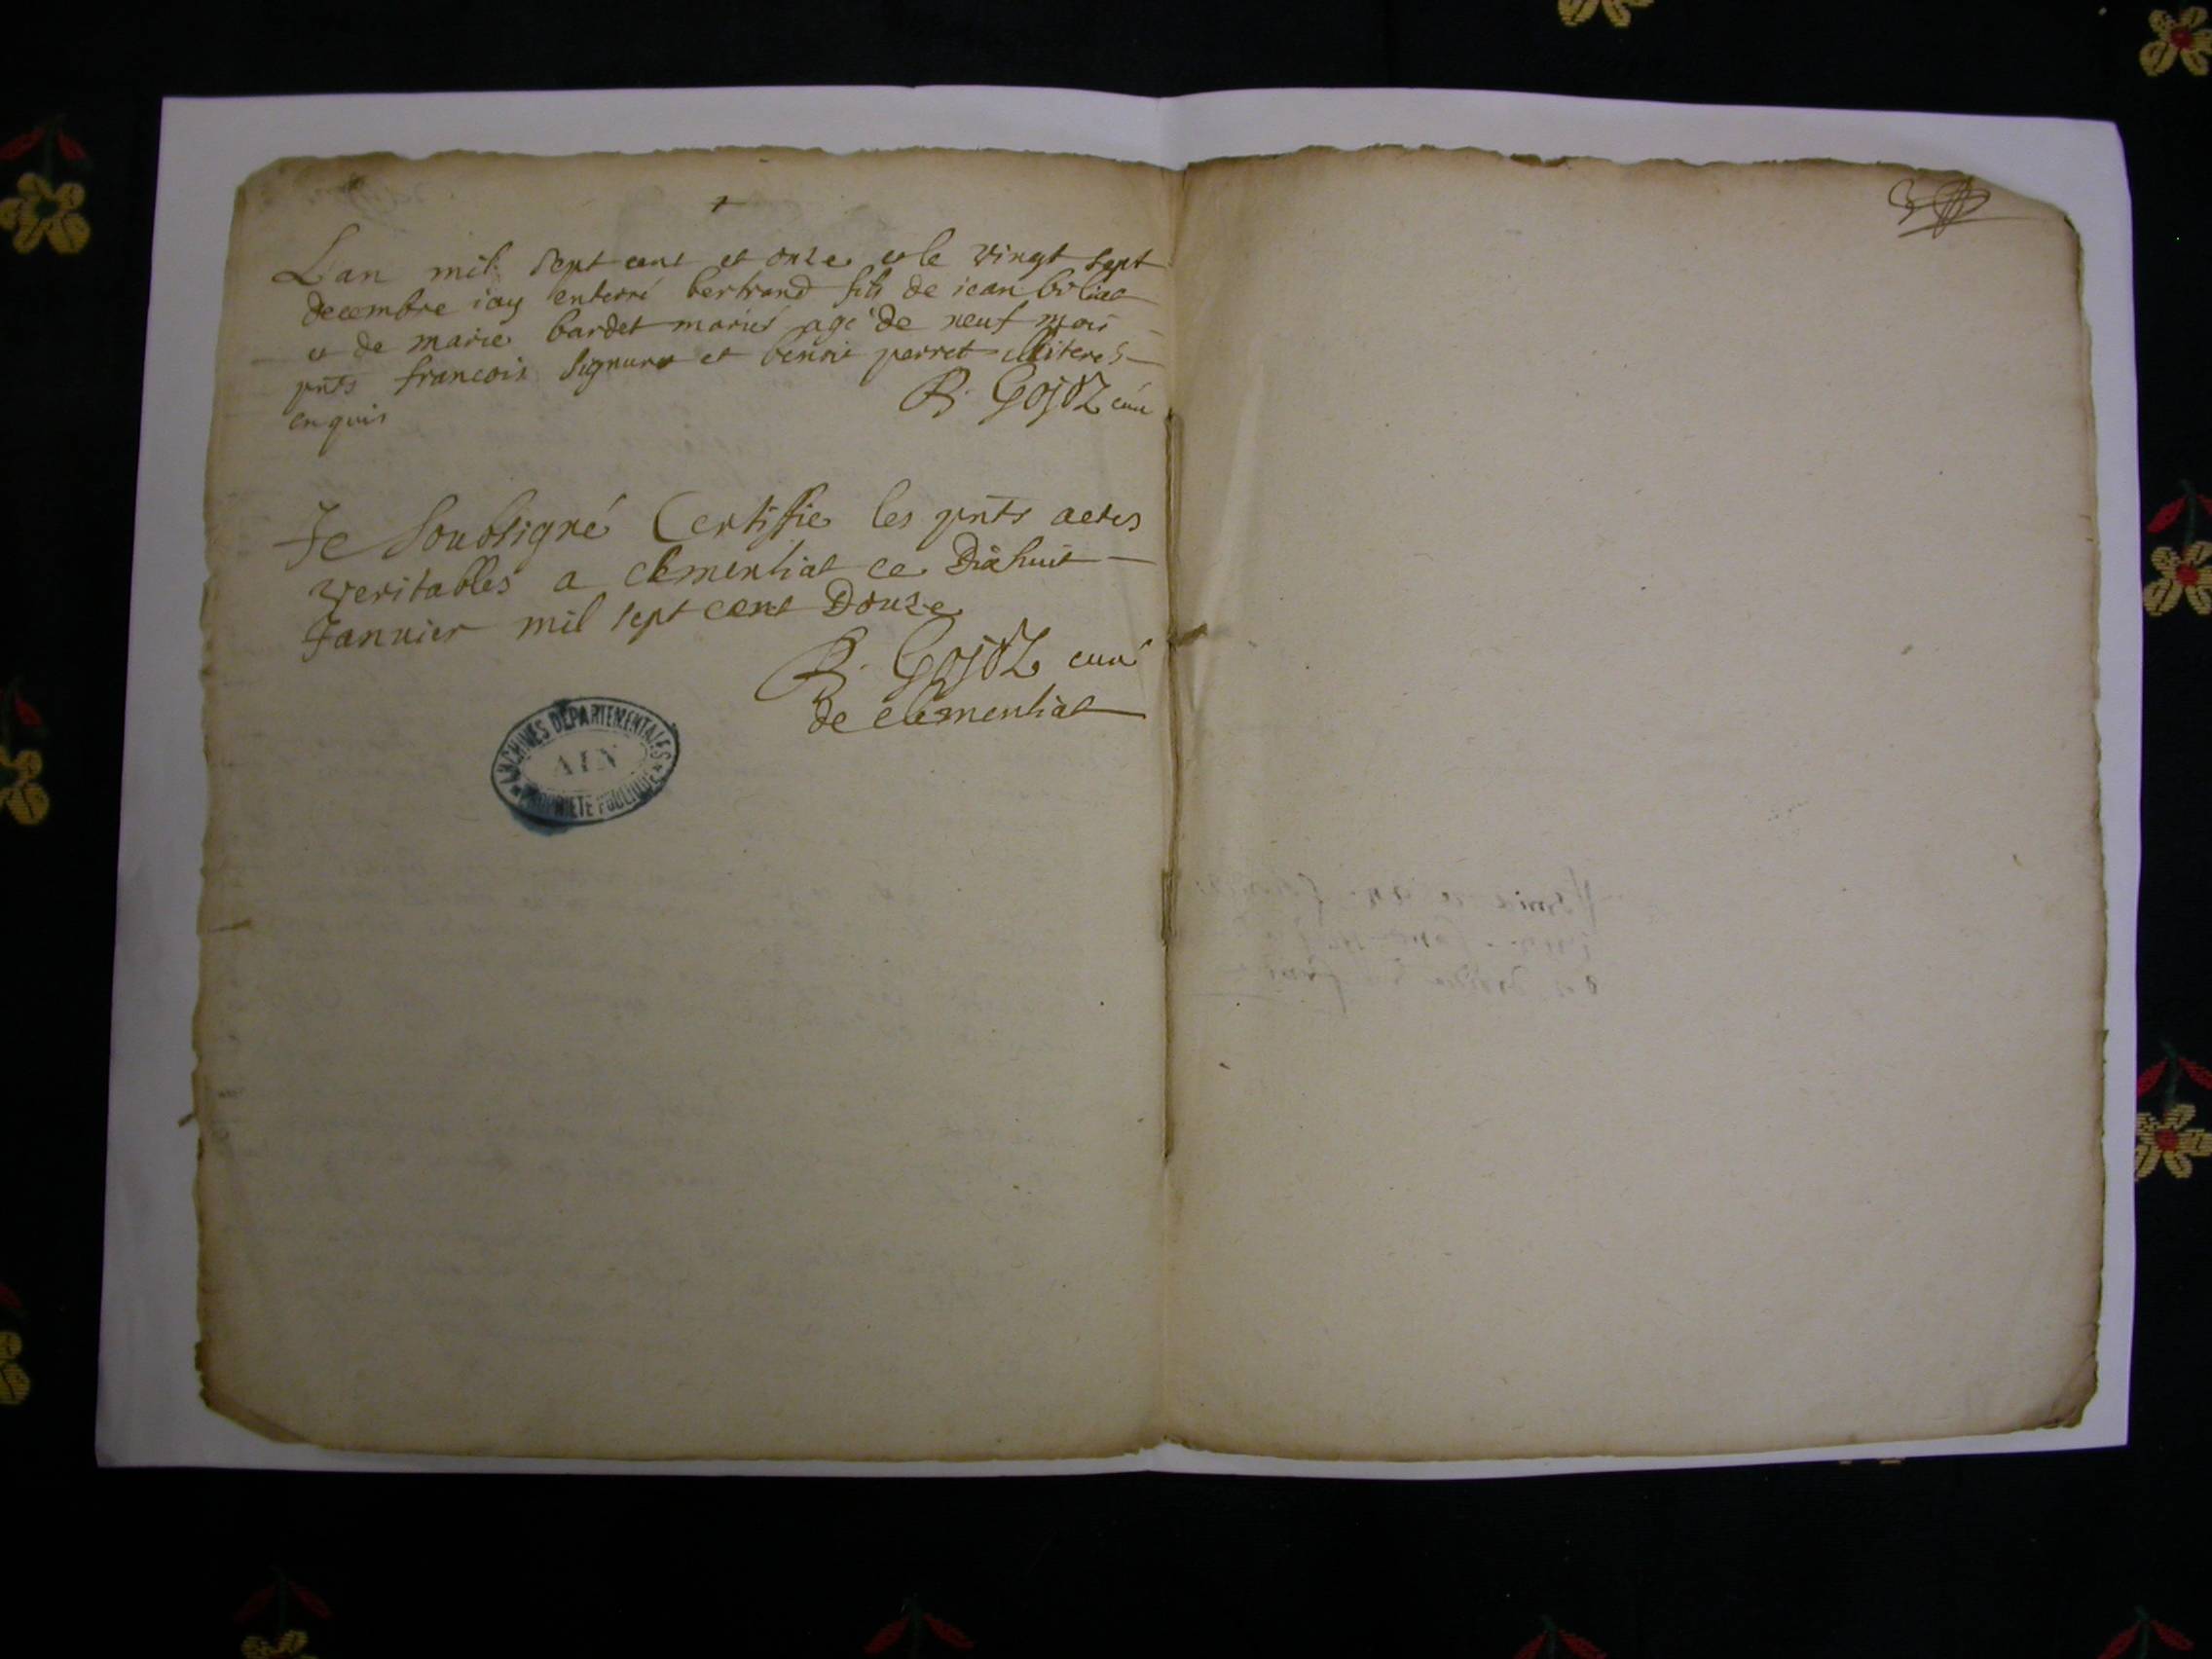 L'an mil sept cent et onze et le vingt sept
decembre iay enterré bertrand fils de iean
et de marie bardet mariés agé de neuf mois
pnts francois et benoit perret illiteres
enquis
B. Gojoz curé
Je Soubsigné Certiffie les pnts actes
veritables a clementiat ce Dixhuit
Januier mil sept cent Douze
B. Gojoz curé
de clementiat
ARCHIVES DÉPARTEMENTALES
AIN
PROPRIÉTÉ PUBLIQUE